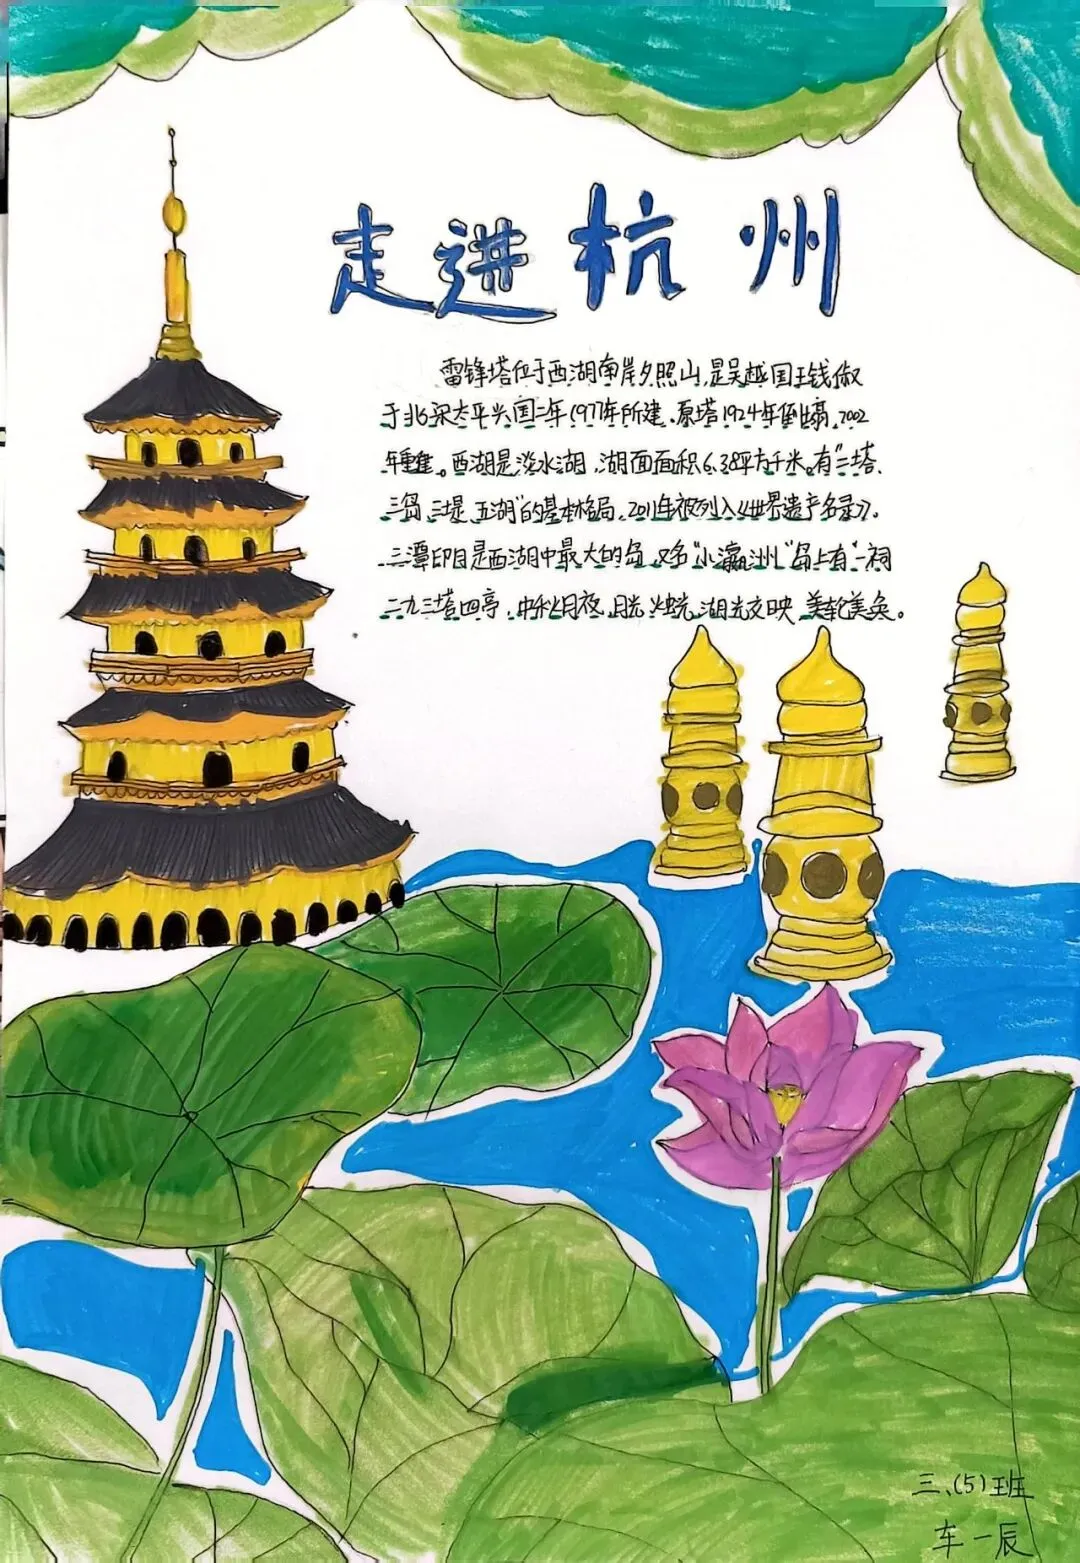 走进杭州
雷锋塔位于西湖南岸夕照山,是吴越国王钱俶
于北宋太平兴国二年(977年所建.原塔1924年倒塌,2002
年重建。西湖是淡水湖,湖面面积6.38平方千米,有“二塔、
三岛、三堤、五湖”的基本格局,2011年被列入《世界遗产名录》.
三潭印月是西湖中最大的岛,又名“小瀛洲”岛上有“一祠
二九三塔四亭,中秋月夜,月光、烛光、湖光交映,美轮美奂。
三、(5)班
车一辰